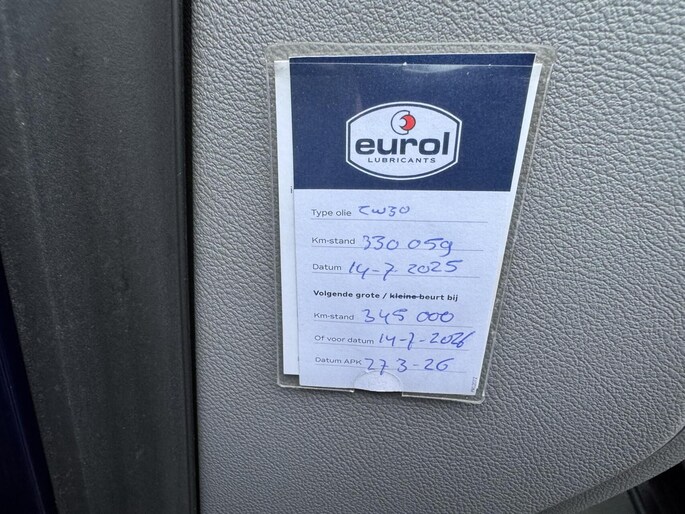 eurol
LUBRICANTS
Type olie 5W30
Km-stand 330 059
Datum 14-7-2025
Volgende grote / kleine beurt bij
Km-stand 345 000
Of voor datum 14-7-2026
Datum APK 27 3-26